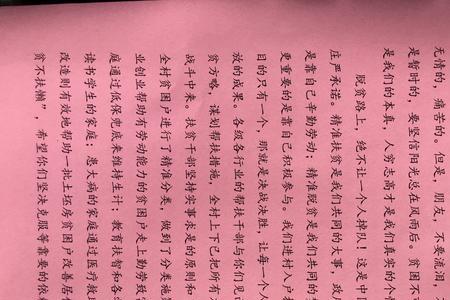 无情的，痛苦的。但是，朋友，不要流泪，
是暂时的，要坚信阳光总在风雨后。贫困不
是我们的本真，人穷志高才是我们真实的个
脱贫路上，绝不让一个人掉队！这是中
庄严承诺。精准扶贫是我们共同的大事，政
是靠自己辛勤劳动；精准脱贫是我们共同的
更重要的是靠自己积极参与。我们进村入户
目的只有一个，那就是决战决胜，让每一个人
放的成果。各级各行业的帮扶干部与你们见
贫方略，谋划帮扶措施，全村上下已把所有
战斗中来。扶贫干部坚持实事求是的原则和
全村贫困户进行了精准分类，做到了分类施
业创业帮助有劳动能力的贫困户走上勤劳致
庭通过低保兜底来维持生计；教育扶智和各
读书学生的家庭；患大病的家庭通过医疗救
改造则有效地帮助一批土坯房贫困户改善居
贫不扶懒”，希望你们坚决克服等靠要的依